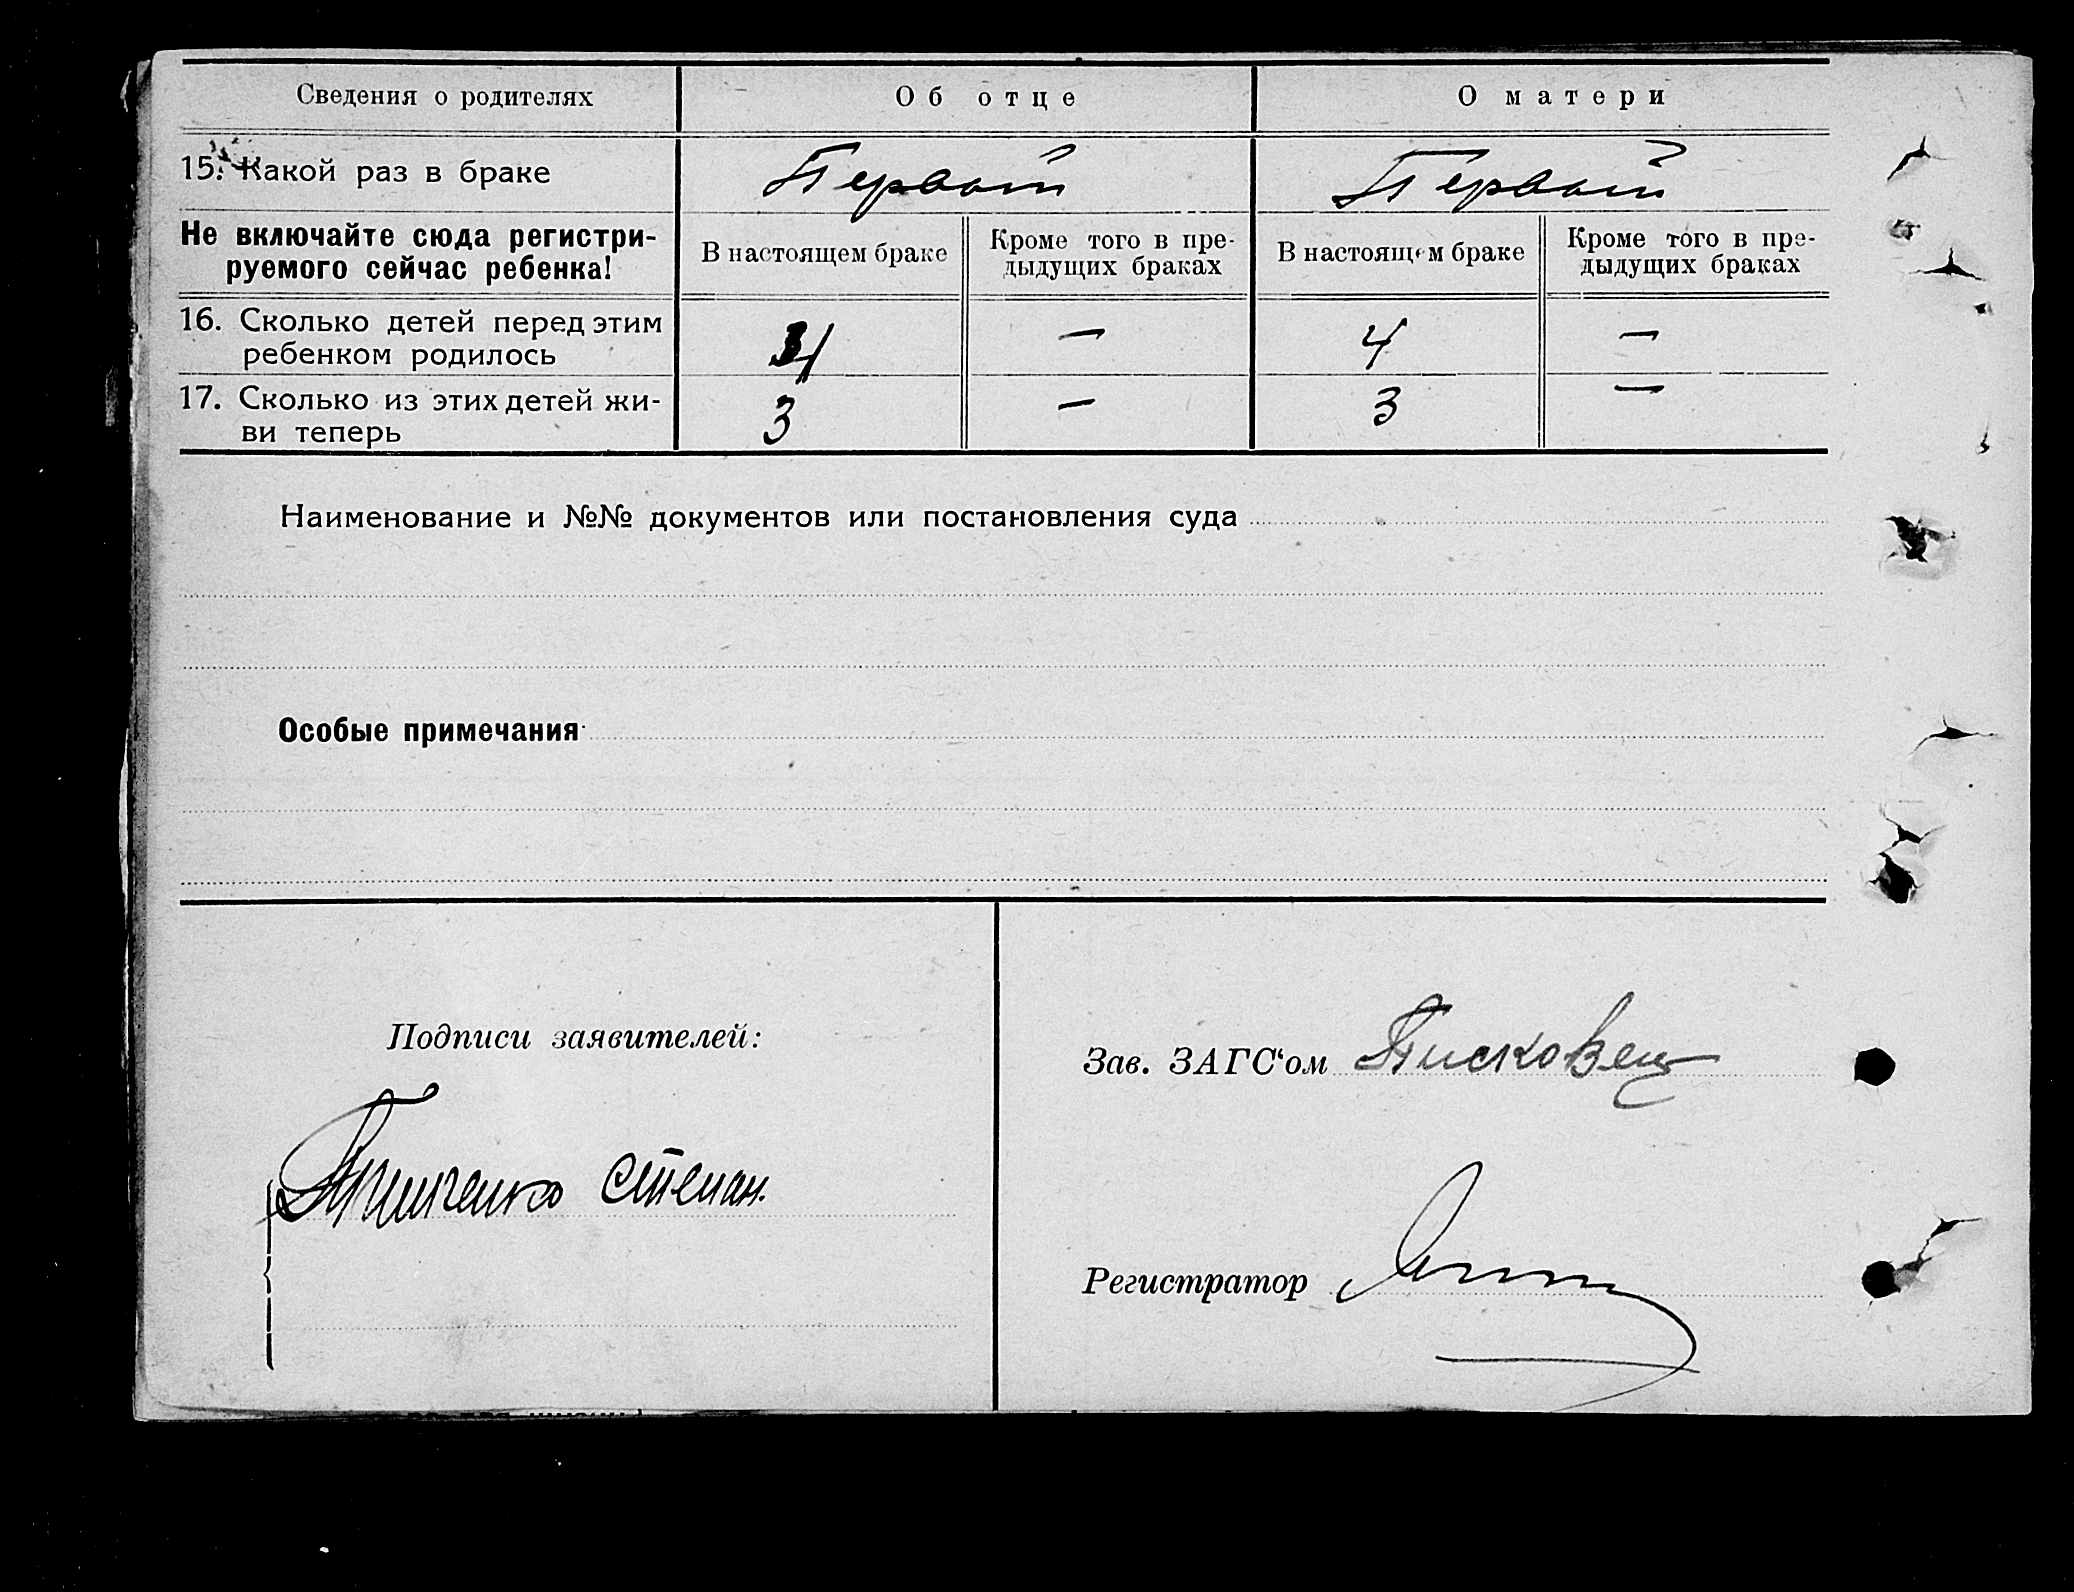 Сведения о родителях
Об отце
О матери
15. Какой раз в браке
Первый
Первый
Не включайте сюда регистри-
руемого сейчас ребенка!
В настоящем браке
Кроме того в пре-
дыдущих браках
В настоящем браке
Кроме того в пре-
дыдущих браках
16. Сколько детей перед этим
ребенком родилось
4
—
4
—
17. Сколько из этих детей жи-
ви теперь
3
—
3
—
Наименование и №№ документов или постановления суда
Особые примечания
Подписи заявителей:
Степан.
Зав. ЗАГС‘ом Писковец
Регистратор